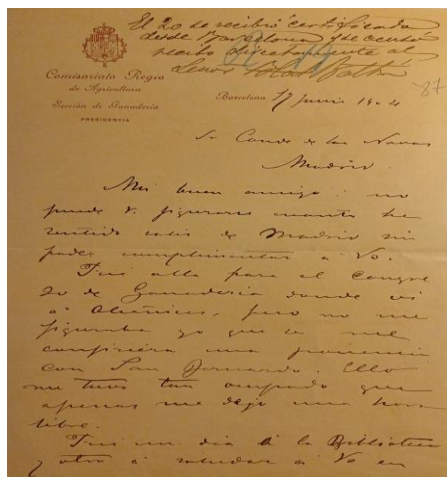 El 20 se recibió certificada
desde Barcelona y se acusó
recibo directamente al
Señor
Comisaría Regia
de Agricultura
Sección de Ganadería
PRESIDENCIA
87
Barcelona 17 junio 1904
Sr Conde de las Navas
Madrid.
Mi buen amigo: no
puede V. figurarse cuanto he
sentido salir de Madrid sin
poder cumplimentar a Vd.
Fui alla para el Congre
so de Ganaderia donde vi
a pero no me
figuraba yo que se me
confiriera una ponencia
con San Bernardo. Ello
me tuvo tan ocupado que
apenas me dejó una hora
libre.
Fui un dia á la Biblioteca
y otro á saludar a Vd en